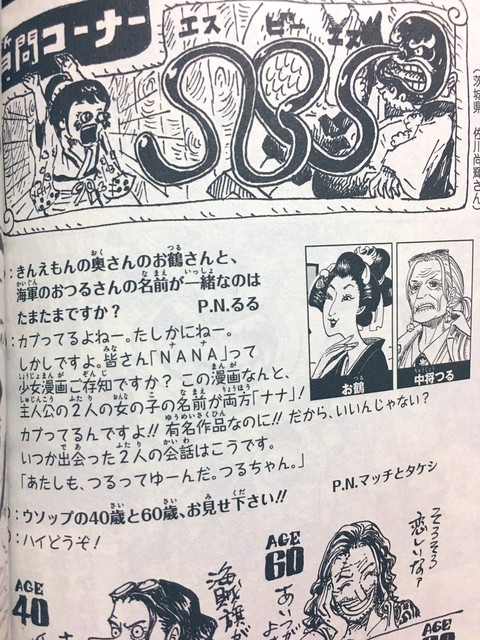 質問コーナー
エス ビー エス
（茨城県 佐川尚輝さん）
：きんえもんの奥さんのお鶴さんと、
海軍のおつるさんの名前が一緒なのは
たまたまですか？ P.N.るる
：カブってるよねー。たしかにねー。
しかしですよ。皆さん「NANA」って
少女漫画ご存知ですか？ この漫画なんと、
主人公の2人の女の子の名前が両方「ナナ」！
カブってるんですよ!! 有名作品なのに!! だから、いいんじゃない？
いつか出会った2人の会話はこうです。
「あたしも、つるってゆーんだ。つるちゃん。」
お鶴
中将つる
P.N.マッチとタケシ
：ウソップの40歳と60歳、お見せ下さい!!
：ハイどうぞ！
AGE
40
海賊旗が
AGE
60
そろそろ
恋しいな？
AGE